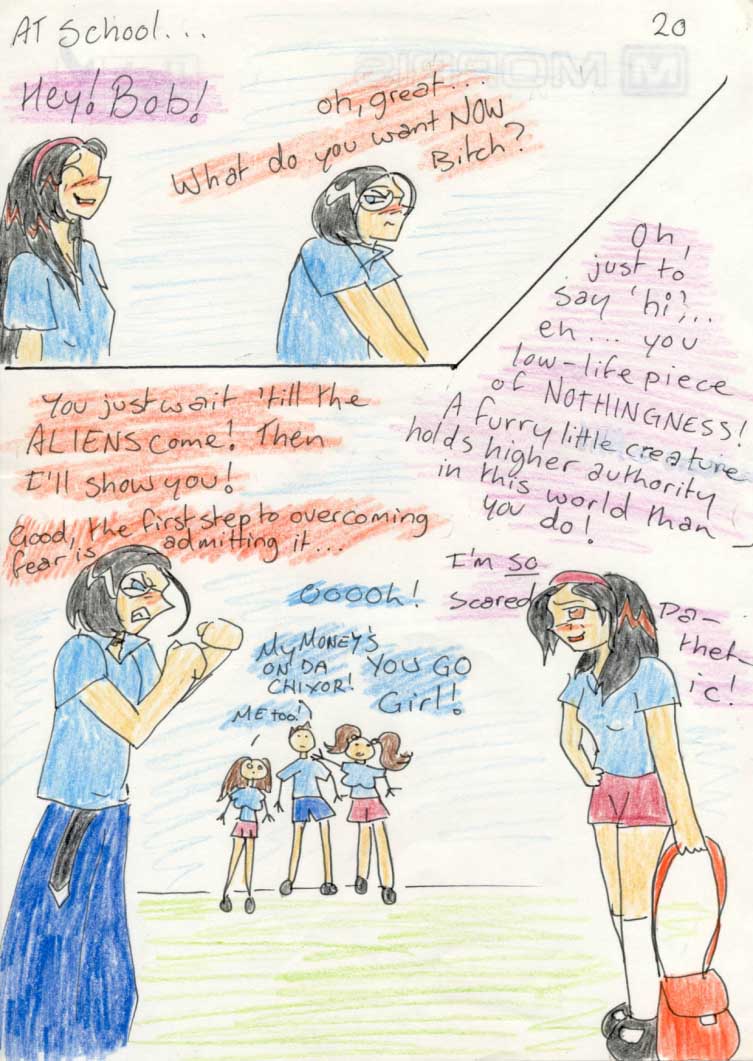 AT School...
20
Hey! Bob!
oh, great...
What do you want NOW
Bitch?
Oh,
just to
say 'hi'...
eh... you
low-life piece
of NOTHINGNESS!
A furry little creature
holds higher authority
in this world than
you do!
You just wait 'till the
ALIENS come! Then
I'll show you!
Good, the first step to overcoming
fear is admitting it...
I'm so
scared
Pa-
thet-
ic!
OOOOh!
MY MONEY'S
ON DA
CHIXOR!
YOU GO
Girl!
ME too!